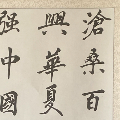 滄桑百
興華夏
强中國